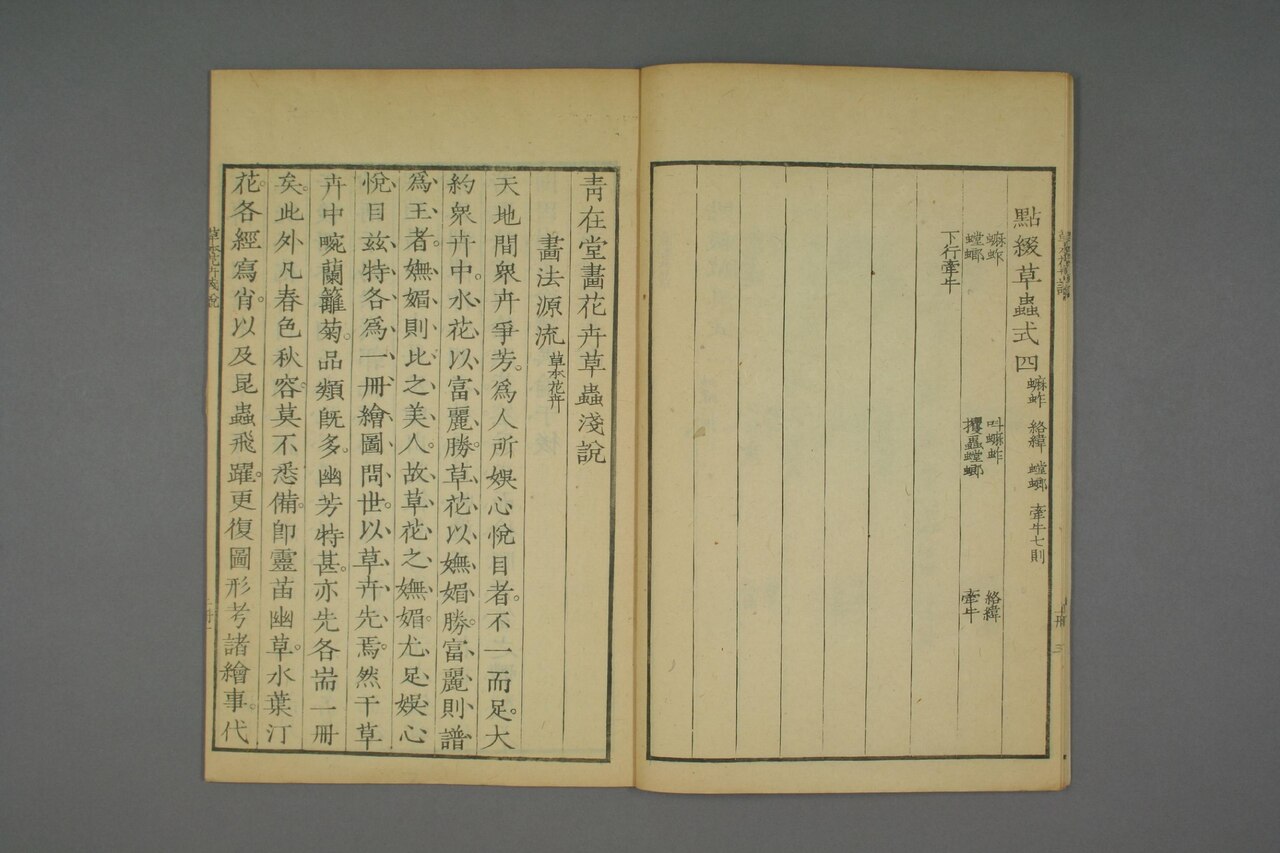 點綴草蟲式四 䗫蚱 絡緯 螳螂 牽牛七則
䗫蚱 叫䗫蚱 絡緯
螳螂 攫蟲螳螂 牽牛
下行牽牛
青在堂畫花卉草蟲淺說
畫法源流 草本花卉
天地間衆卉爭芳。爲人所娛心悅目者。不一而足。大
約衆卉中。木花以富麗勝。草花以嫵媚勝。富麗則譜
爲王者。嫵媚則比之美人。故草花之嫵媚。尤足娛心
悅目。茲特各爲一冊。繪圖問世。以草卉先焉。然于草
卉中畹蘭籬菊。品類旣多。幽芳特甚。亦先各耑一冊
矣。此外凡春色秋容。莫不悉備。卽靈苗幽草。水葉汀
花。各經寫肖。以及昆蟲飛躍。更復圖形考諸繪事。代
草木花卉淺說